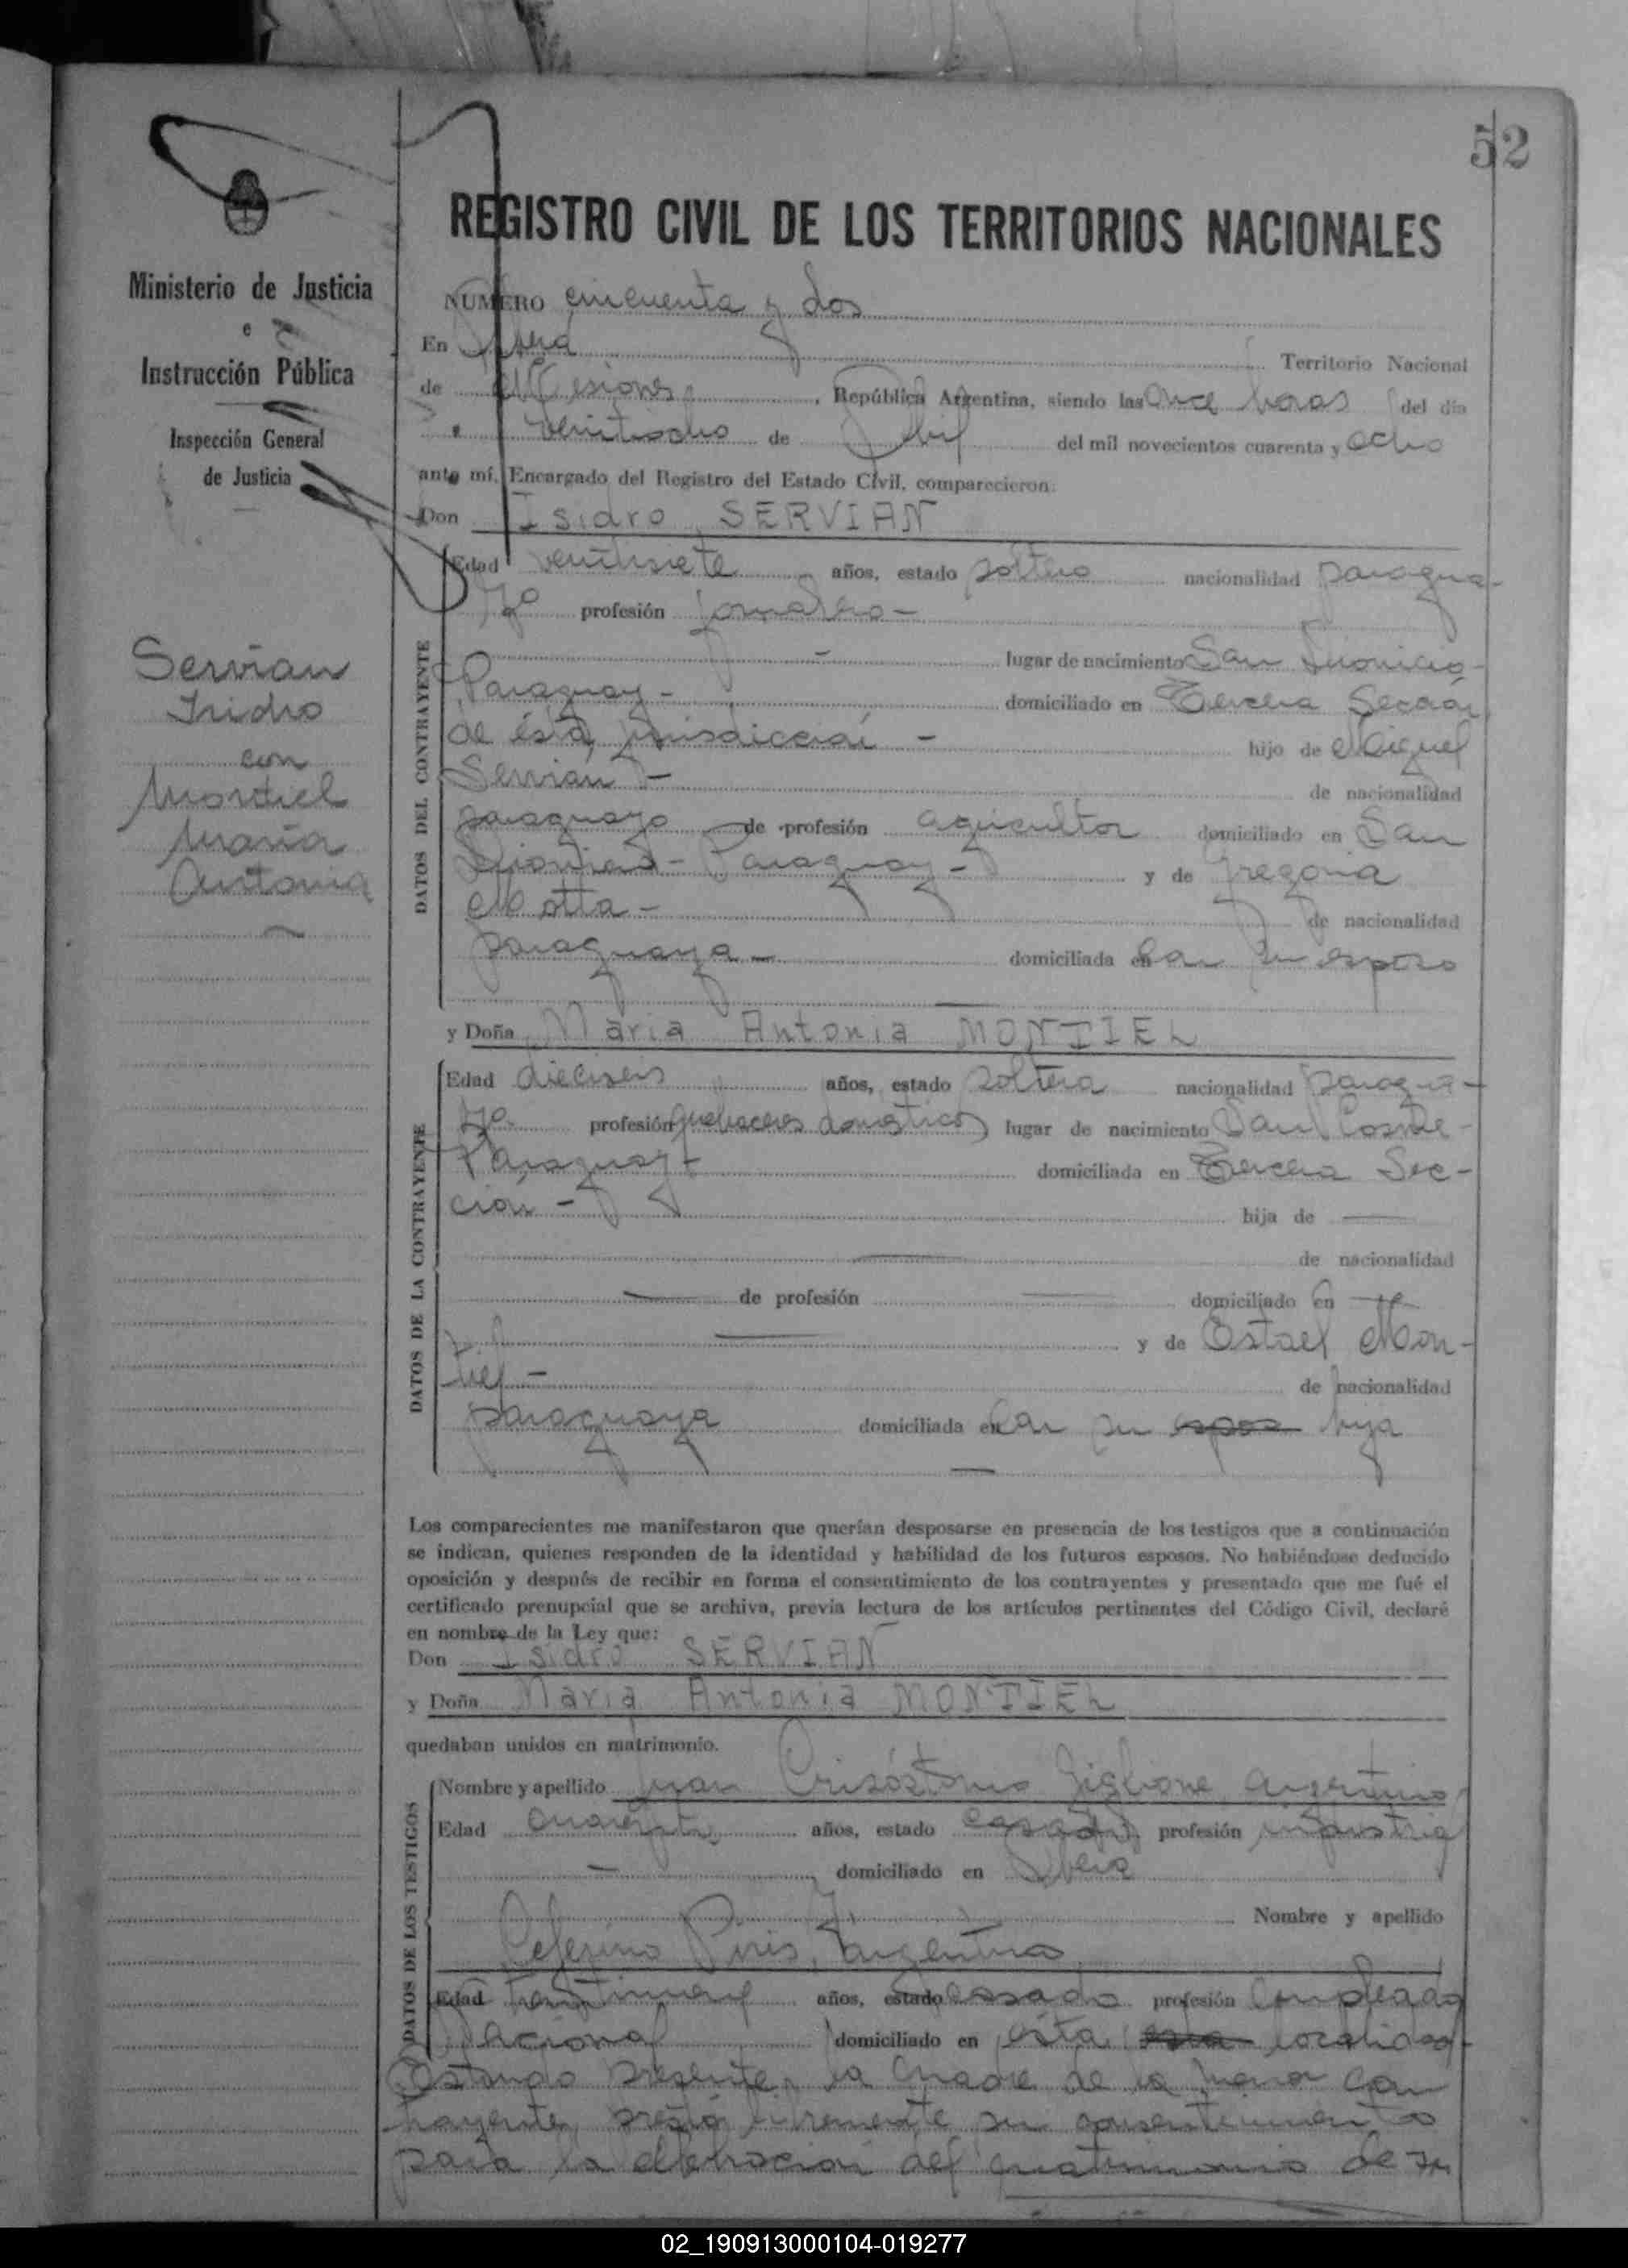 52
REGISTRO CIVIL DE LOS TERRITORIOS NACIONALES
Ministerio de Justicia
e
Instrucción Pública
Inspección General
de Justicia
Servian
Isidro
con
Montiel
María
Antonia
NUMERO cincuenta y dos
En Territorio Nacional
de Misiones, República Argentina, siendo las once horas del día
veintiocho de Abril del mil novecientos cuarenta y ocho
ante mí, Encargado del Registro del Estado Civil, comparecieron:
Don Isidro SERVIAN
Edad veintisiete años, estado soltero nacionalidad paragua-
yo profesión jornalero -
lugar de nacimiento San
Paraguay - domiciliado en Tercera Sección
de ésta jurisdicción - hijo de Miguel
Servian - de nacionalidad
paraguayo de profesión agricultor domiciliado en San
Paraguay - y de Gregoria
Motta - de nacionalidad
paraguaya - domiciliada en con su esposo
y Doña Maria Antonia MONTIEL
Edad dieciseis años, estado soltera nacionalidad paragua-
ya profesión quehaceres domésticos lugar de nacimiento San Cosme -
Paraguay - domiciliada en Tercera Sec-
ción - hija de
de nacionalidad
de profesión domiciliado en
y de Mon-
tiel - de nacionalidad
paraguaya domiciliada en con su espos hija
Los comparecientes me manifestaron que querían desposarse en presencia de los testigos que a continuación
se indican, quienes responden de la identidad y habilidad de los futuros esposos. No habiéndose deducido
oposición y después de recibir en forma el consentimiento de los contrayentes y presentado que me fué el
certificado prenupcial que se archiva, previa lectura de los artículos pertinentes del Código Civil, declaré
en nombre de la Ley que:
Don Isidro SERVIAN
y Doña Maria Antonia MONTIEL
quedaban unidos en matrimonio.
Nombre y apellido Juan Crisóstomo Giglione argentino
Edad cuarenta años, estado casado, profesión industrial
domiciliado en
Nombre y apellido
Ceferino Piris, Argentino
Edad treintinueve años, estado casado profesión Empleado
Nacional domiciliado en esta localidad -
Estando presente la madre de la menor con
trayente, prestó libremente su consentimiento
para la celebración del matrimonio de su
DATOS DEL CONTRAYENTE
DATOS DE LA CONTRAYENTE
DATOS DE LOS TESTIGOS
02_190913000104-019277